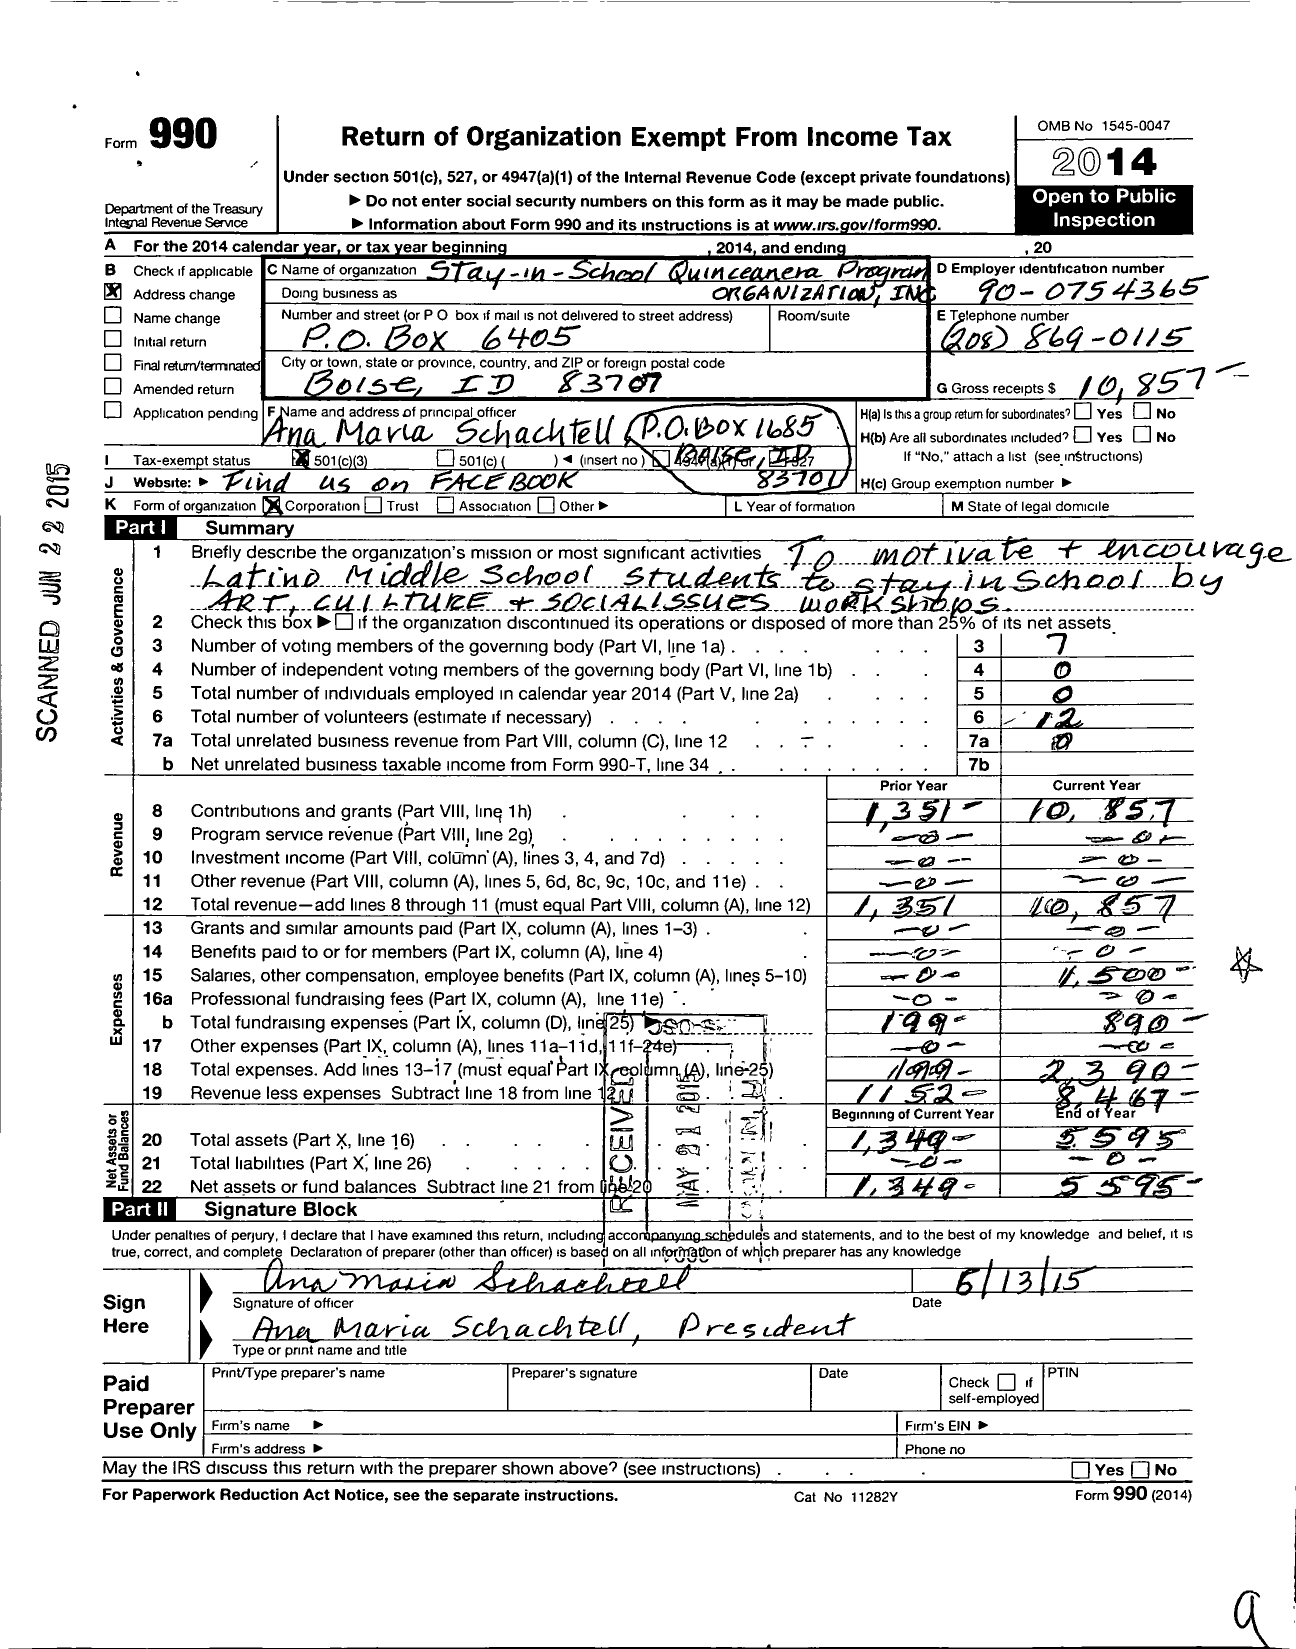 Form 990
Return of Organization Exempt From Income Tax
OMB No 1545-0047
2014
Under section 501(c), 527, or 4947(a)(1) of the Internal Revenue Code (except private foundations)
▶ Do not enter social security numbers on this form as it may be made public.
▶ Information about Form 990 and its instructions is at www.irs.gov/form990.
Department of the Treasury
Internal Revenue Service
Open to Public
Inspection
A For the 2014 calendar year, or tax year beginning , 2014, and ending , 20
B Check if applicable
Address change
Name change
Initial return
Final return/terminated
Amended return
Application pending
C Name of organization Stay-in-School Quinceanera Program
Doing business as ORGANIZATION, INC
Number and street (or P O box if mail is not delivered to street address) Room/suite
P.O. Box 6405
City or town, state or province, country, and ZIP or foreign postal code
Boise, ID 83707
D Employer identification number
90-0754365
E Telephone number
(208) 869-0115
G Gross receipts $ 10,857-
F Name and address of principal officer
Ana Maria Schachtell P.O. Box 1685
Boise, ID
83701
H(a) Is this a group return for subordinates? Yes No
H(b) Are all subordinates included? Yes No
If "No," attach a list (see instructions)
H(c) Group exemption number ▶
I Tax-exempt status 501(c)(3) 501(c) ( ) ◀ (insert no) 4947(a)(1) or 527
J Website: ▶ Find us on FACEBOOK
K Form of organization Corporation Trust Association Other ▶
L Year of formation
M State of legal domicile
Part I Summary
1 Briefly describe the organization's mission or most significant activities To motivate + encourage
Latino Middle School Students to stay in School by
ART, CULTURE + SOCIAL ISSUES workshops.
2 Check this box ▶ if the organization discontinued its operations or disposed of more than 25% of its net assets
3 Number of voting members of the governing body (Part VI, line 1a) 3 7
4 Number of independent voting members of the governing body (Part VI, line 1b) 4 0
5 Total number of individuals employed in calendar year 2014 (Part V, line 2a) 5 0
6 Total number of volunteers (estimate if necessary) 6 12
7a Total unrelated business revenue from Part VIII, column (C), line 12 7a 0
b Net unrelated business taxable income from Form 990-T, line 34 7b
Prior Year Current Year
8 Contributions and grants (Part VIII, line 1h) 1,351- 10,857
9 Program service revenue (Part VIII, line 2g) -0- -0-
10 Investment income (Part VIII, column (A), lines 3, 4, and 7d) -0- -0-
11 Other revenue (Part VIII, column (A), lines 5, 6d, 8c, 9c, 10c, and 11e) -0- -0-
12 Total revenue—add lines 8 through 11 (must equal Part VIII, column (A), line 12) 1,351 10,857
13 Grants and similar amounts paid (Part IX, column (A), lines 1-3) -0- -0-
14 Benefits paid to or for members (Part IX, column (A), line 4) -0- -0-
15 Salaries, other compensation, employee benefits (Part IX, column (A), lines 5-10) -0- 1,500-
16a Professional fundraising fees (Part IX, column (A), line 11e) -0- -0-
b Total fundraising expenses (Part IX, column (D), line 25) ▶ 199- 890-
17 Other expenses (Part IX, column (A), lines 11a-11d, 11f-24e) -0- -0-
18 Total expenses. Add lines 13-17 (must equal Part IX, column (A), line 25) 199- 2,390-
19 Revenue less expenses Subtract line 18 from line 12 1152- 8,467-
Beginning of Current Year End of Year
20 Total assets (Part X, line 16) 1,349- 5595
21 Total liabilities (Part X, line 26) -0- -0-
22 Net assets or fund balances Subtract line 21 from line 20 1,349- 5595-
Activities & Governance
Revenue
Expenses
Net Assets or
Fund Balances
RECEIVED
SCANNED JUN 22 2015
Part II Signature Block
Under penalties of perjury, I declare that I have examined this return, including accompanying schedules and statements, and to the best of my knowledge and belief, it is
true, correct, and complete Declaration of preparer (other than officer) is based on all information of which preparer has any knowledge
Sign
Here
Ana Maria Schachtell
Signature of officer
5/13/15
Date
Ana Maria Schachtell, President
Type or print name and title
Paid
Preparer
Use Only
Print/Type preparer's name Preparer's signature Date Check if
self-employed
PTIN
Firm's name ▶ Firm's EIN ▶
Firm's address ▶ Phone no
May the IRS discuss this return with the preparer shown above? (see instructions) Yes No
For Paperwork Reduction Act Notice, see the separate instructions. Cat No 11282Y Form 990 (2014)